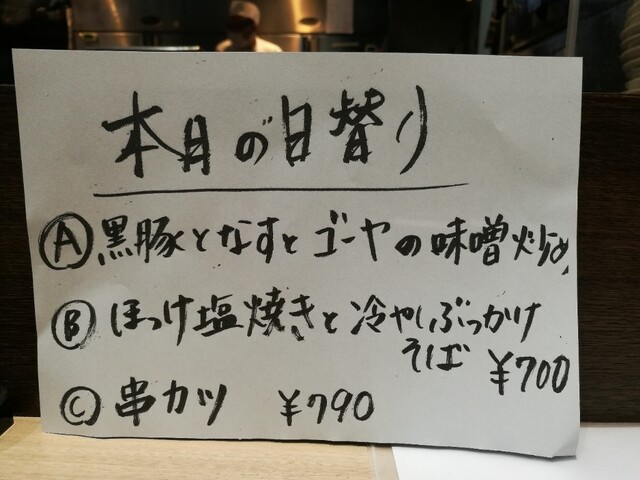 本月の日替り
Ⓐ黒豚となすとゴーヤの味噌炒め
Ⓑほっけ塩焼きと冷やしぶっかけ
そば ¥700
Ⓒ串カツ ¥790